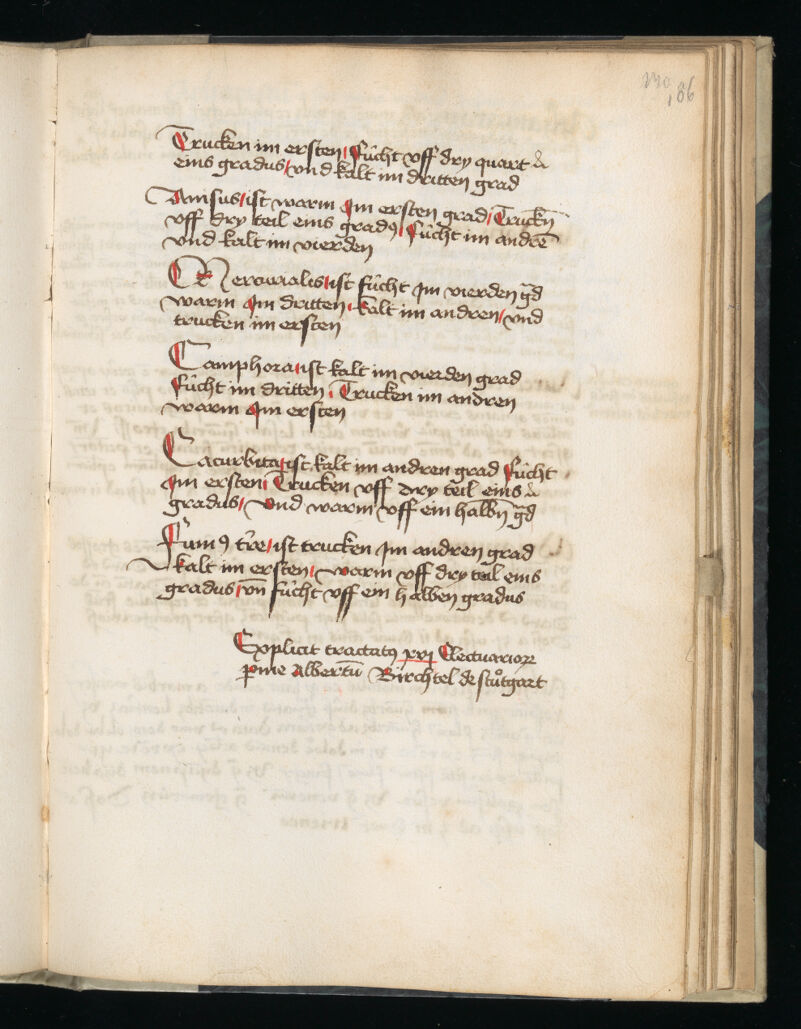 186
Trucken im ersten / fücht vff dry quart
eins gradus / vnd kalt im dritten grad
Anisus / ist warm Im ersten grad / Truckn̄
vff dry teil eins gradꝰ / fücht im andrē
vnd kalt im vierden
Mercurialis / ist fücht Im vierden gd
warm Im dritten / kalt im andren / vnd
trucken im ersten
Camphora / ist kalt im vierden grad
fücht im dritten / Trucken im andren
warm Im ersten
Cucurbita / ist kalt im andren grad fücht
Im ersten / Trucken vff dry teil eins
gradus / vnd warm vff ein halbn̄ gd
Fumꝰ tr̄e / ist trucken Im andren grad
kalt im ersten / warm vff dry teil eins
gradus / vn̄ fücht vff ein halben gradus
Explicit tractatꝰ xxj Electuarioꝝ
ꝑ me Albertū Birchtel de stůtgart